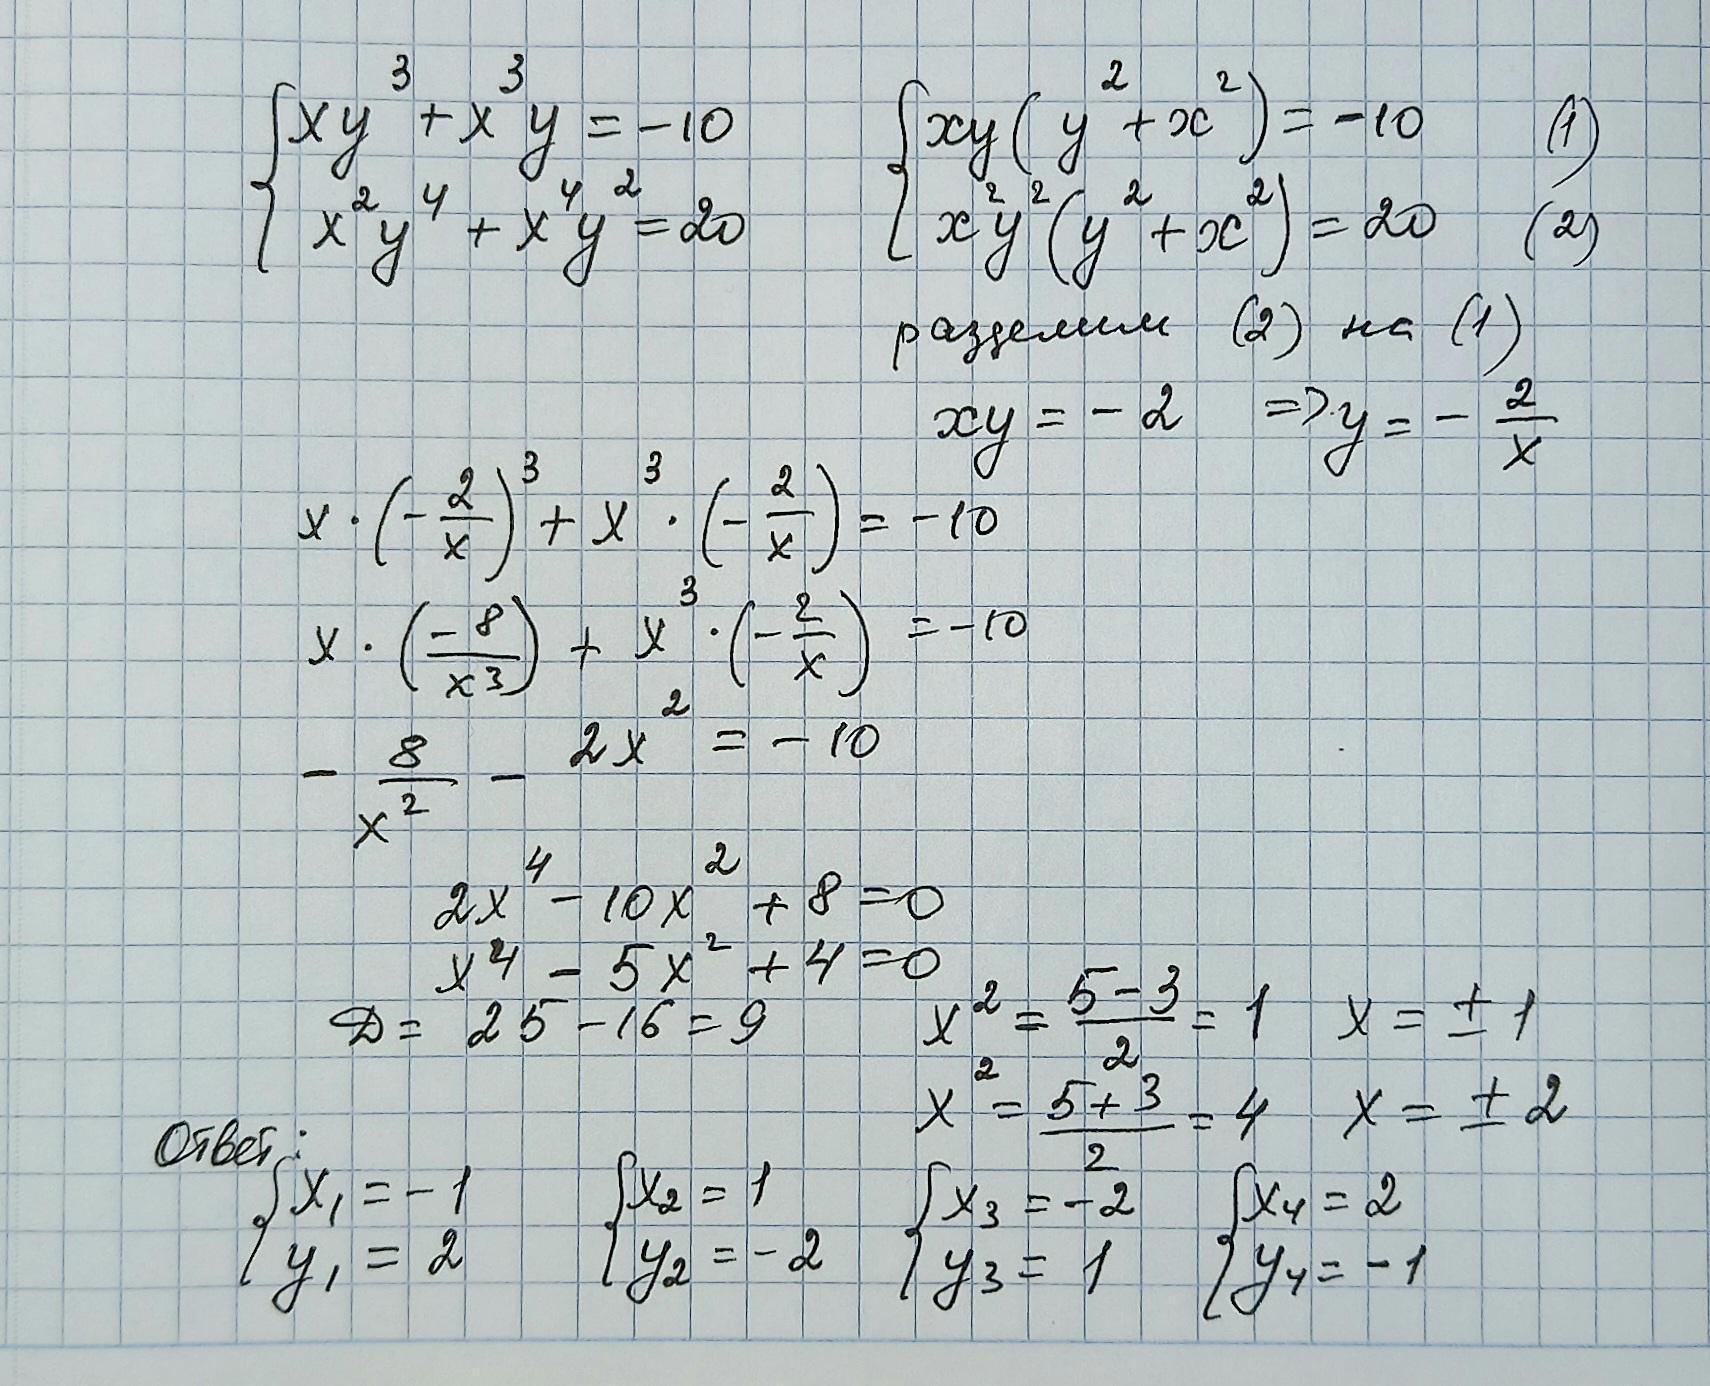 { xy³ + x³y = -10
x²y⁴ + x⁴y² = 20
{ xy(y² + x²) = -10 (1)
x²y²(y² + x²) = 20 (2)
разделим (2) на (1)
xy = -2 => y = - 2/x
x · (-2/x)³ + x³ · (-2/x) = -10
x · (-8/x³) + x³ · (-2/x) = -10
- 8/x² - 2x² = -10
2x⁴ - 10x² + 8 = 0
x⁴ - 5x² + 4 = 0
D = 25 - 16 = 9
x² = (5-3)/2 = 1 x = ± 1
x² = (5+3)/2 = 4 x = ± 2
Ответ:
{ x₁ = -1 { x₂ = 1 { x₃ = -2 { x₄ = 2
y₁ = 2 y₂ = -2 y₃ = 1 y₄ = -1